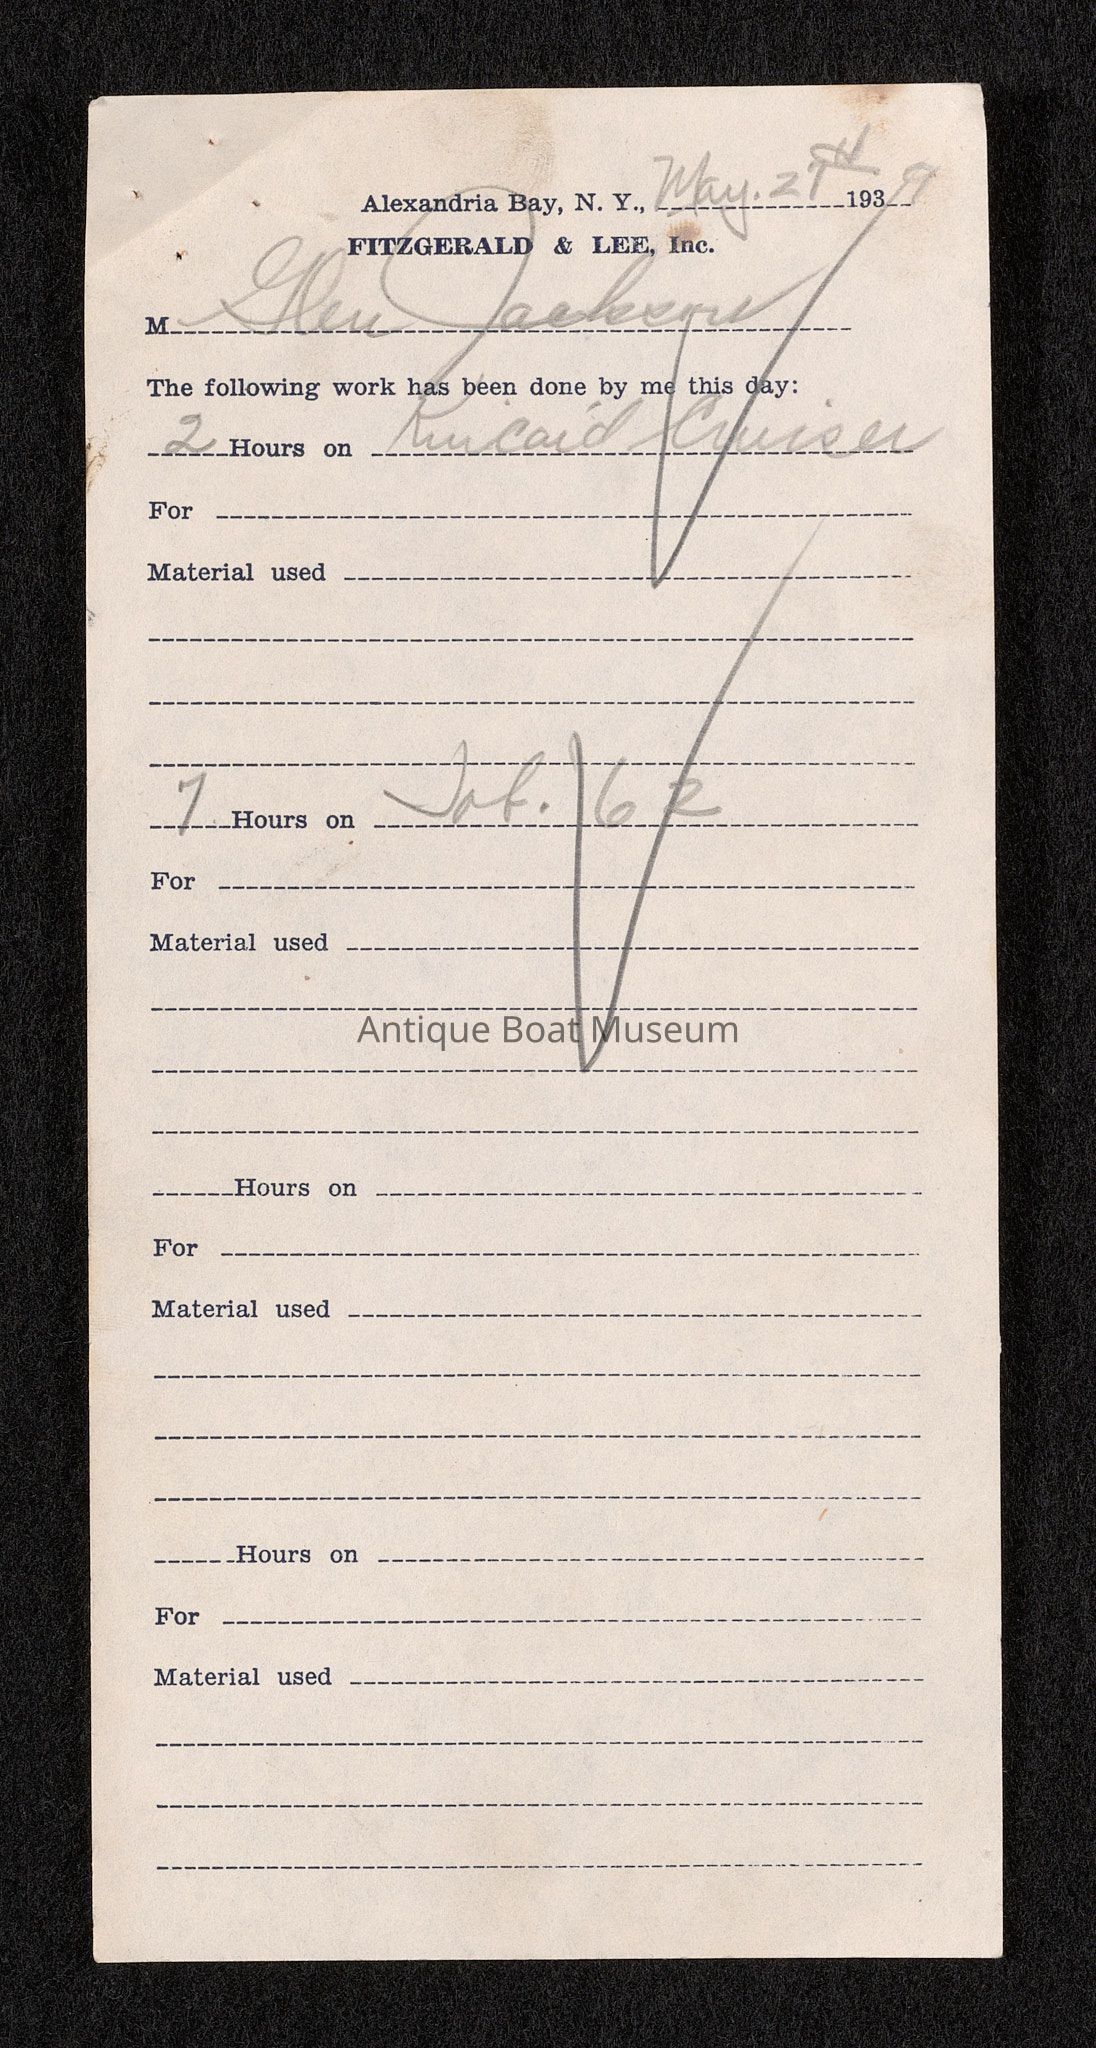 Alexandria Bay, N. Y., May. 2TH 1939
FITZGERALD & LEE, Inc.
M Glen Jackson
The following work has been done by me this day:
2 Hours on Kincaid Cruiser
For
Material used
7 Hours on Job. 162
For
Material used
Antique Boat Museum
Hours on
For
Material used
Hours on
For
Material used